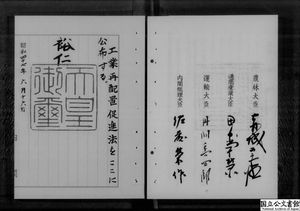 農林大臣 赤城宗徳
通商産業大臣 田中角榮
運輸大臣 丹羽喬四郎
内閣総理大臣 佐藤榮作
工業再配置促進法をここに
公布する。
裕仁
天皇
御璽
昭和四十七年六月十六日
国立公文書館
National Archives of Japan